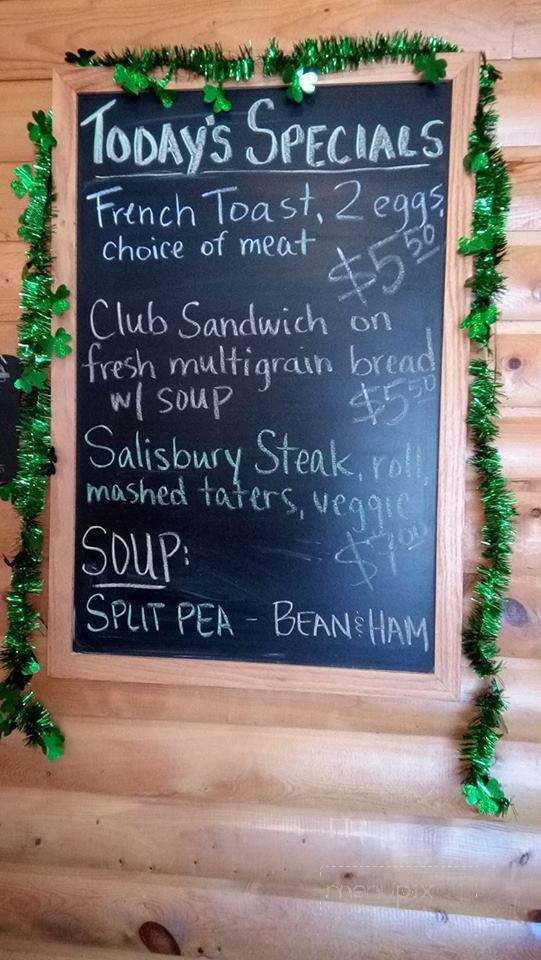 TODAY'S SPECIALS
French Toast, 2 eggs,
choice of meat
$5 50
Club Sandwich on
fresh multigrain bread
w/ SOUP
$5 50
Salisbury Steak, roll,
mashed taters, veggie
$7 00
SOUP:
SPLIT PEA - BEAN & HAM
menupix